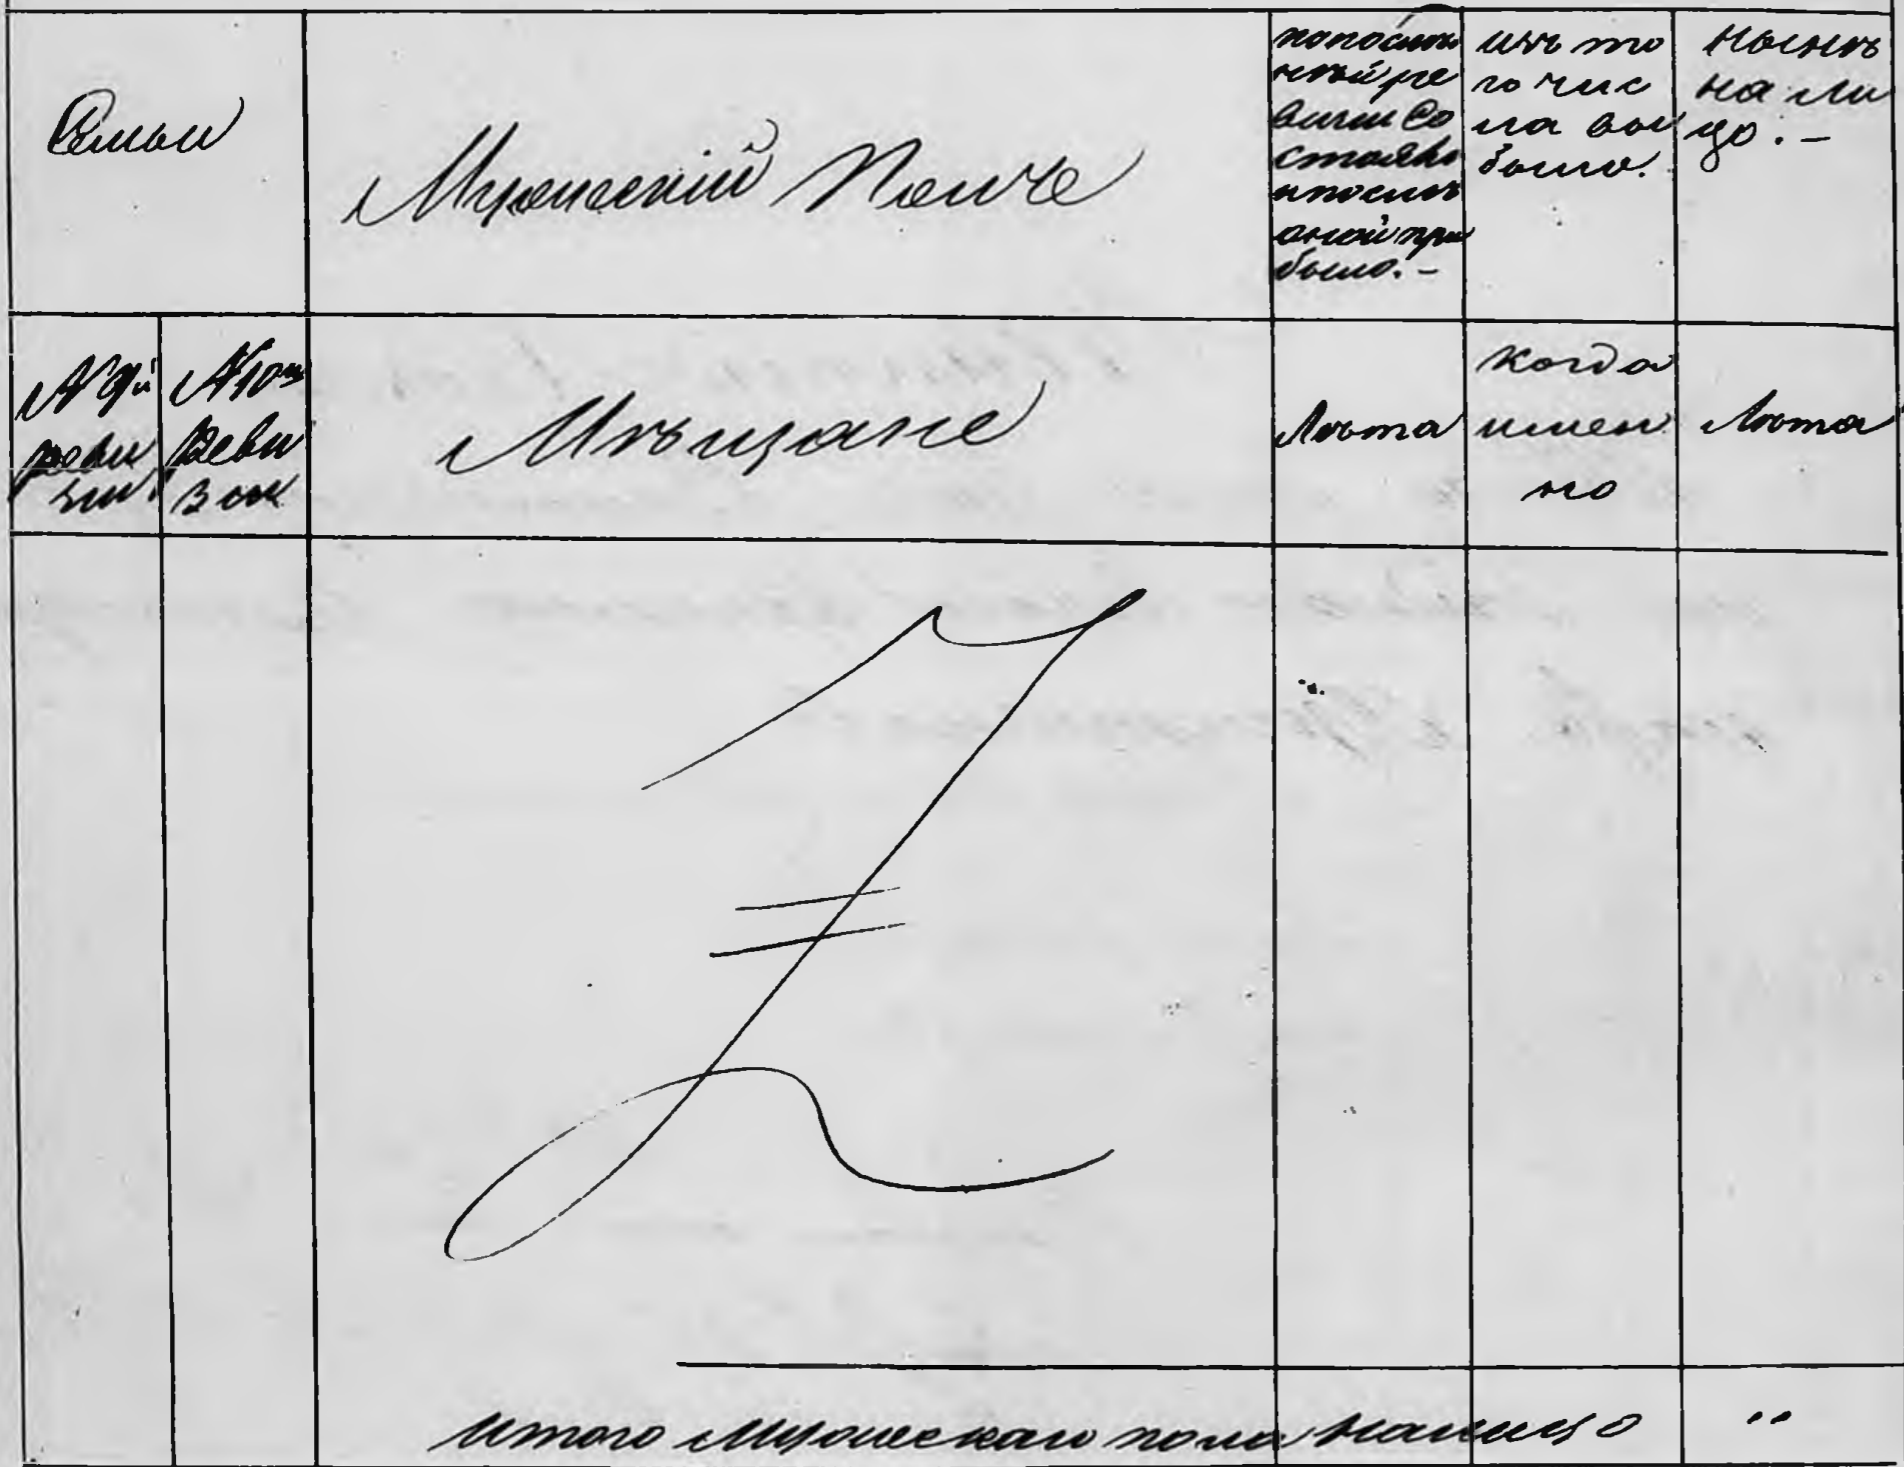 Семьи
Мужескій Полъ
попослѣд
нѣй ре
визіи Со
стояло
ипослѣ
оной при
было. -
изъ то
го чис
ла вы
было.
Нынѣ
на ли
цо. -
№ 9й
реви
зіи
№ 10й
Реви
зіи
Мѣщане
Лѣта
когда
имен
но
Лѣта
Итого Мужескаго пола налицо "